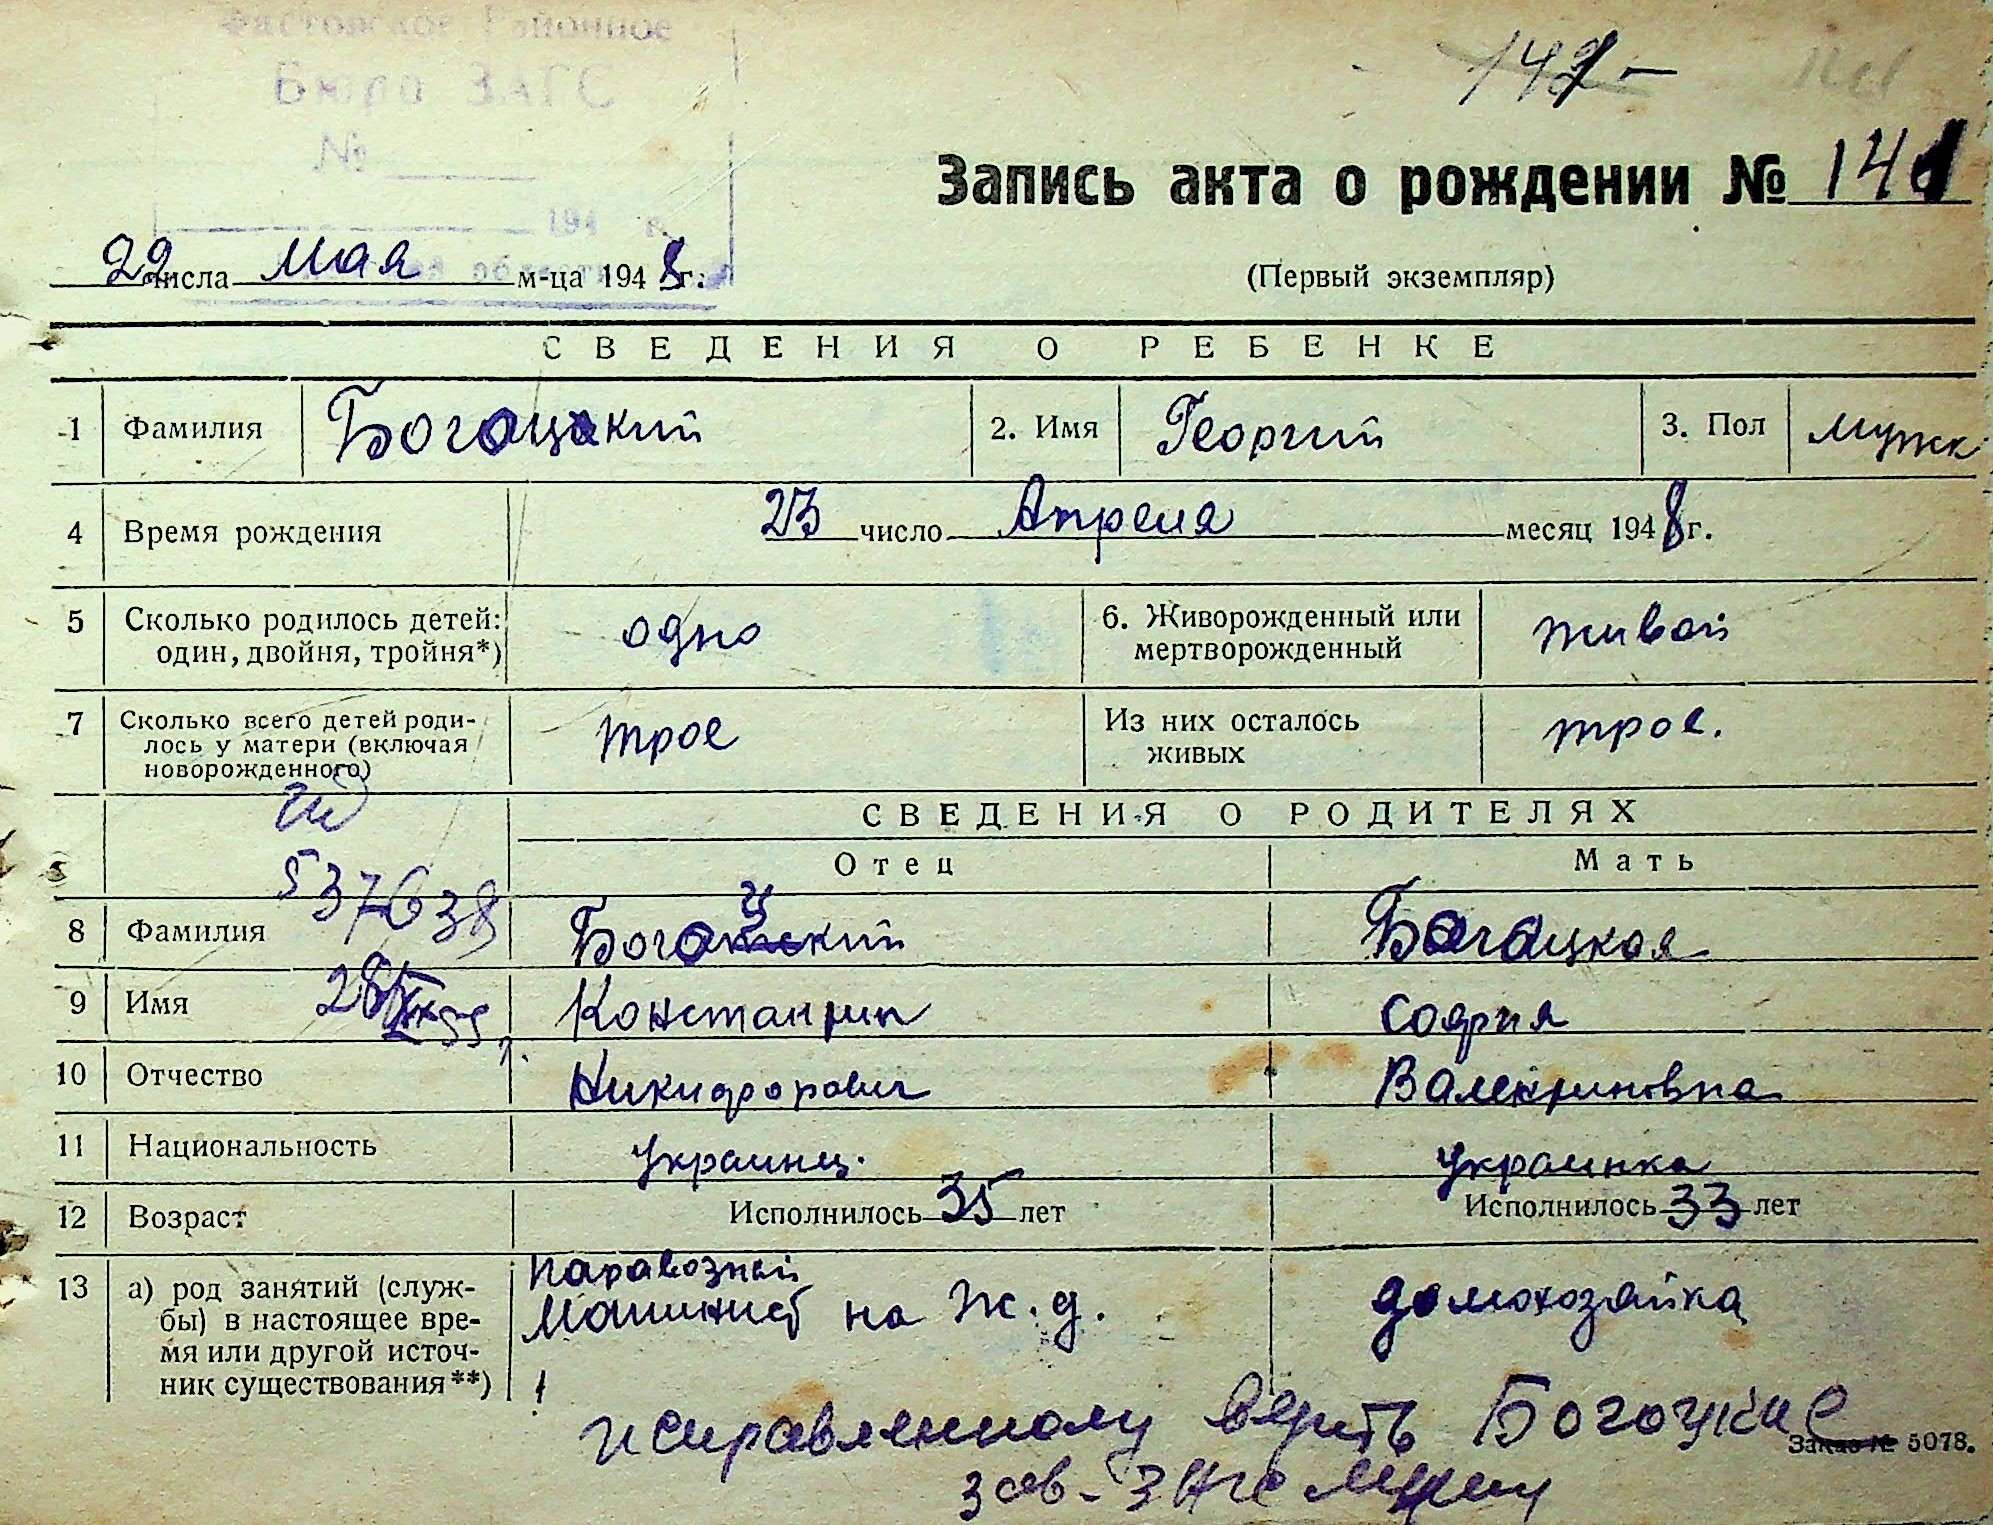 Фастовское Районное
Бюро ЗАГС
№
194 г.
Запись акта о рождении № 141
22 числа мая м-ца 1948 г.
(Первый экземпляр)
СВЕДЕНИЯ О РЕБЕНКЕ
1 Фамилия Богацкий 2. Имя Георгий 3. Пол мужк
4 Время рождения 23 число Апреля месяц 1948 г.
5 Сколько родилось детей: одно 6. Живорожденный или живой
один, двойня, тройня*) мертворожденный
7 Сколько всего детей роди- трое Из них осталось трое.
лось у матери (включая живых
новорожденного)
СВЕДЕНИЯ О РОДИТЕЛЯХ
Отец Мать
537638
8 Фамилия Богацкий Богацкая
9 Имя Константин София
10 Отчество Никифорович Валериновна
11 Национальность украинец. украинка
12 Возраст Исполнилось 35 лет Исполнилось 33 лет
13 а) род занятий (служ- Паравозный
бы) в настоящее вре- Машинист на ж.д. домохозайка
мя или другой источ-
ник существования**)
исправленному верить Богоцкие
Заказ № 5078.
зав-